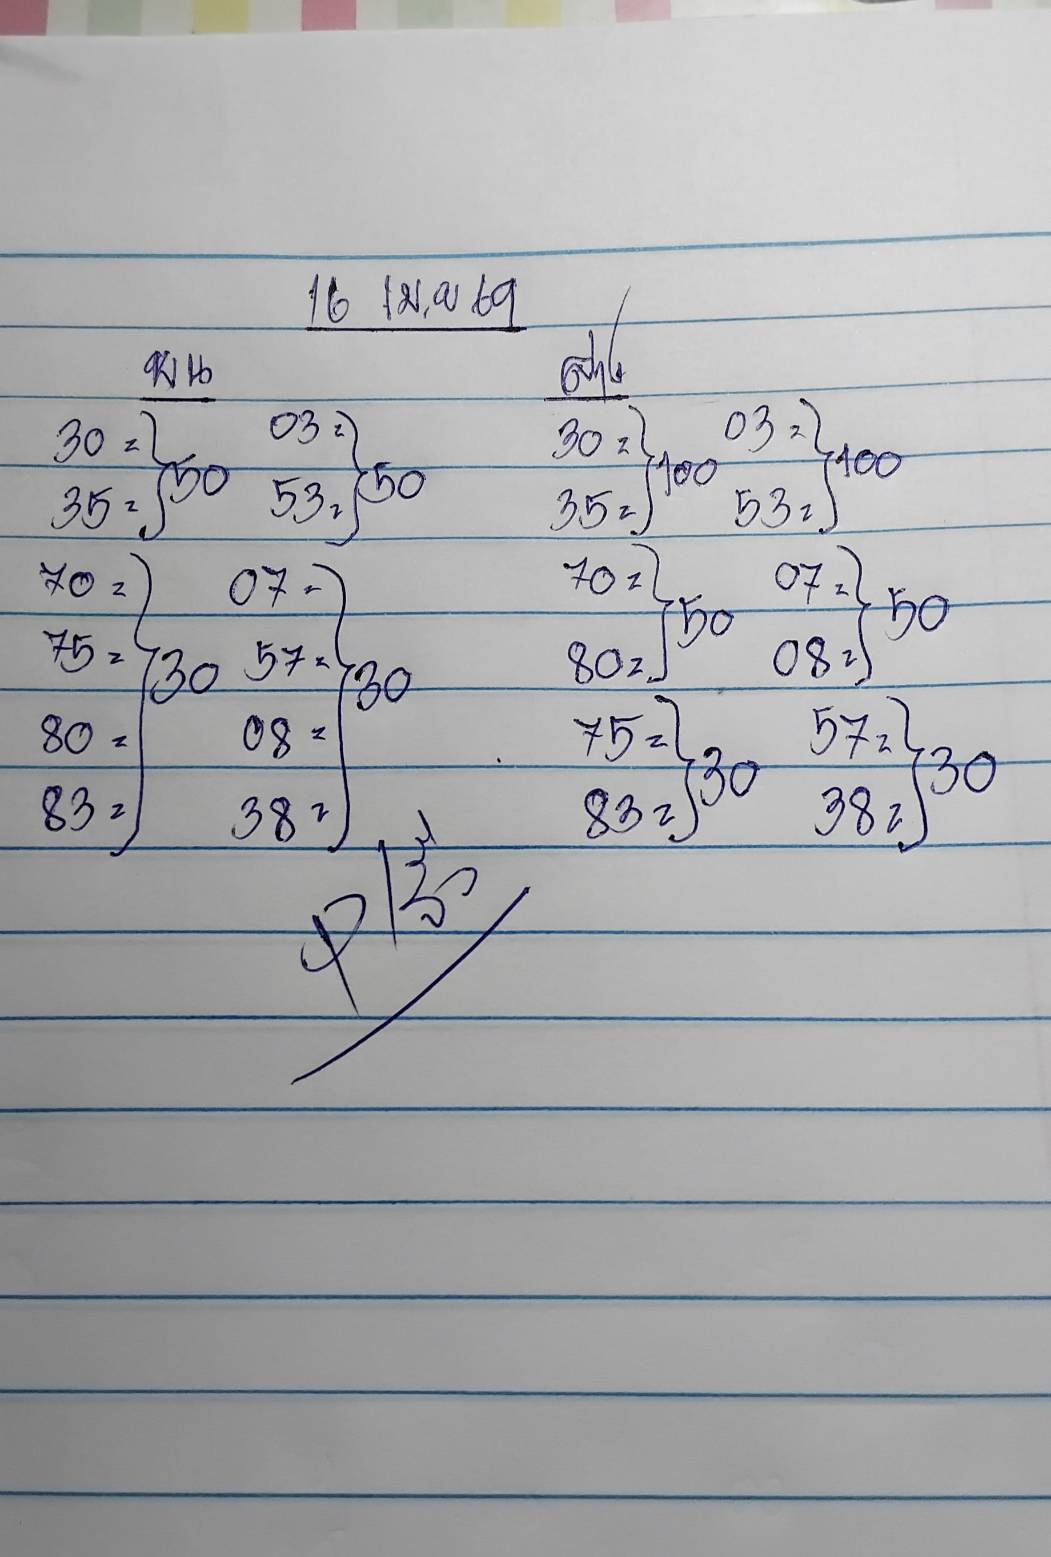 16 เม.ย 69
บน ล่าง
30 = } 50 03 = } 50 30 = } 100 03 = } 100
35 = 53 = 35 = 53 =
70 = } 30 07 = } 30 70 = } 50 07 = } 50
75 = 57 = 80 = 08 =
80 = 08 = 75 = } 30 57 = } 30
83 = 38 = 83 = 38 =